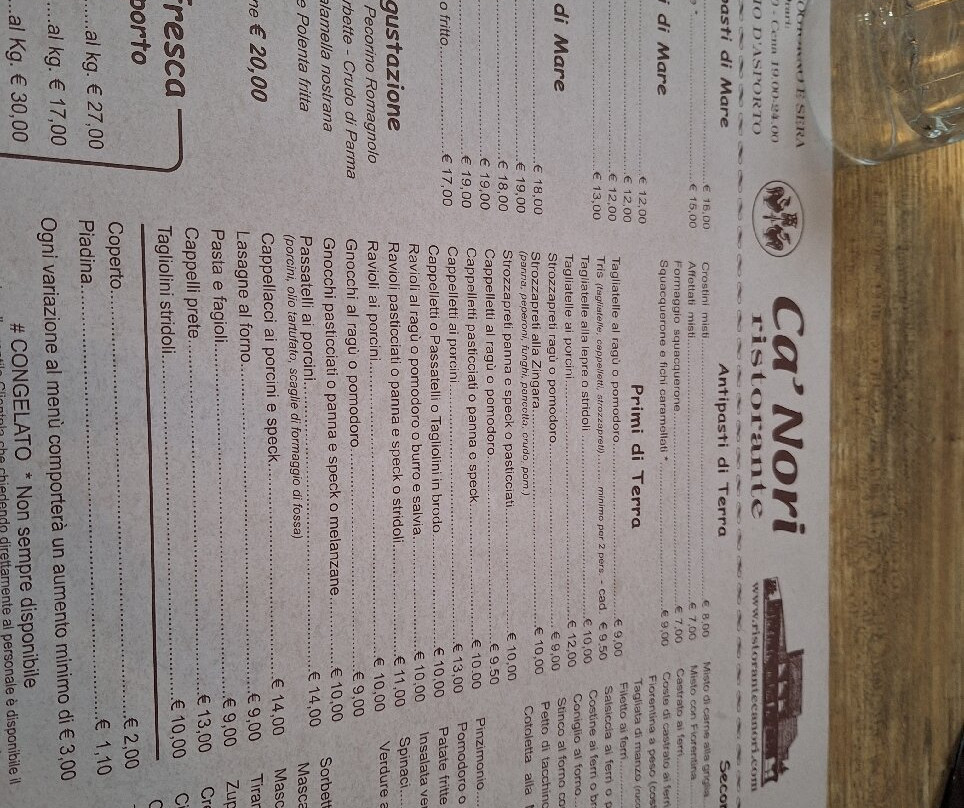 E SERA
19.00-24.00
D'ASPORTO
di Mare
€ 16,00
€ 15,00
di Mare
€ 12,00
€ 12,00
€ 12,00
€ 13,00
di Mare
€ 18,00
€ 19,00
€ 18,00
€ 19,00
€ 19,00
o fritto € 17,00
gustazione
Pecorino Romagnolo
Crudo di Parma
alamella nostrana
e Polenta fritta
ne € 20,00
fresca
porto
al kg. € 27,00
al kg. € 17,00
al Kg. € 30,00
Ca' Nori
ristorante
www.ristorantecanori.com
Antipasti di Terra
Crostini misti € 8,00
Affettati misti € 7,00
Formaggio squacquerone € 7,00
Squacquerone e fichi caramellati * € 9,00
Primi di Terra
Tagliatelle al ragù o pomodoro € 9,00
Tris (tagliatelle, cappelletti, strozzapreti) minimo per 2 pers. - cad. € 9,50
Tagliatelle alla lepre o stridoli € 10,00
Tagliatelle ai porcini € 12,00
Strozzapreti ragù o pomodoro € 9,00
Strozzapreti alla Zingara € 10,00
(panna, peperoni, funghi, pancetta, crudo, pom.)
Strozzapreti panna e speck o pasticciati € 10,00
Cappelletti al ragù o pomodoro € 9,50
Cappelletti pasticciati o panna e speck € 10,00
Cappelletti ai porcini € 13,00
Cappelletti o Passatelli o Tagliolini in brodo € 10,00
Ravioli al ragù o pomodoro o burro e salvia € 10,00
Ravioli pasticciati o panna e speck o stridoli € 11,00
Ravioli ai porcini € 10,00
Gnocchi al ragù o pomodoro € 9,00
Gnocchi pasticciati o panna e speck o melanzane € 10,00
Passatelli ai porcini € 14,00
(porcini, olio tartufato, scaglie di formaggio di fossa)
Cappellacci ai porcini e speck € 14,00
Lasagne al forno € 9,00
Pasta e fagioli € 9,00
Cappelli prete € 13,00
Tagliolini stridoli € 10,00
Coperto € 2,00
Piadina € 1,10
Ogni variazione al menù comporterà un aumento minimo di € 3,00
# CONGELATO * Non sempre disponibile
Clientela che chiedendo direttamente al personale è disponibile il
Secon
Misto di carne alla griglia
Misto con Fiorentina
Castrato ai ferri
Coste di castrato ai ferri
Fiorentina a peso (cost
Tagliata di manzo
Filetto ai ferri
Salsiccia ai ferri o p
Costine ai ferri o br
Coniglio al forno
Stinco al forno co
Petto di tacchino
Cotoletta alla
Pinzimonio
Pomodoro o
Patate fritte
Insalata ve
Spinaci
Verdure a
Sorbett
Masca
Masc
Tirar
Zup
Cre